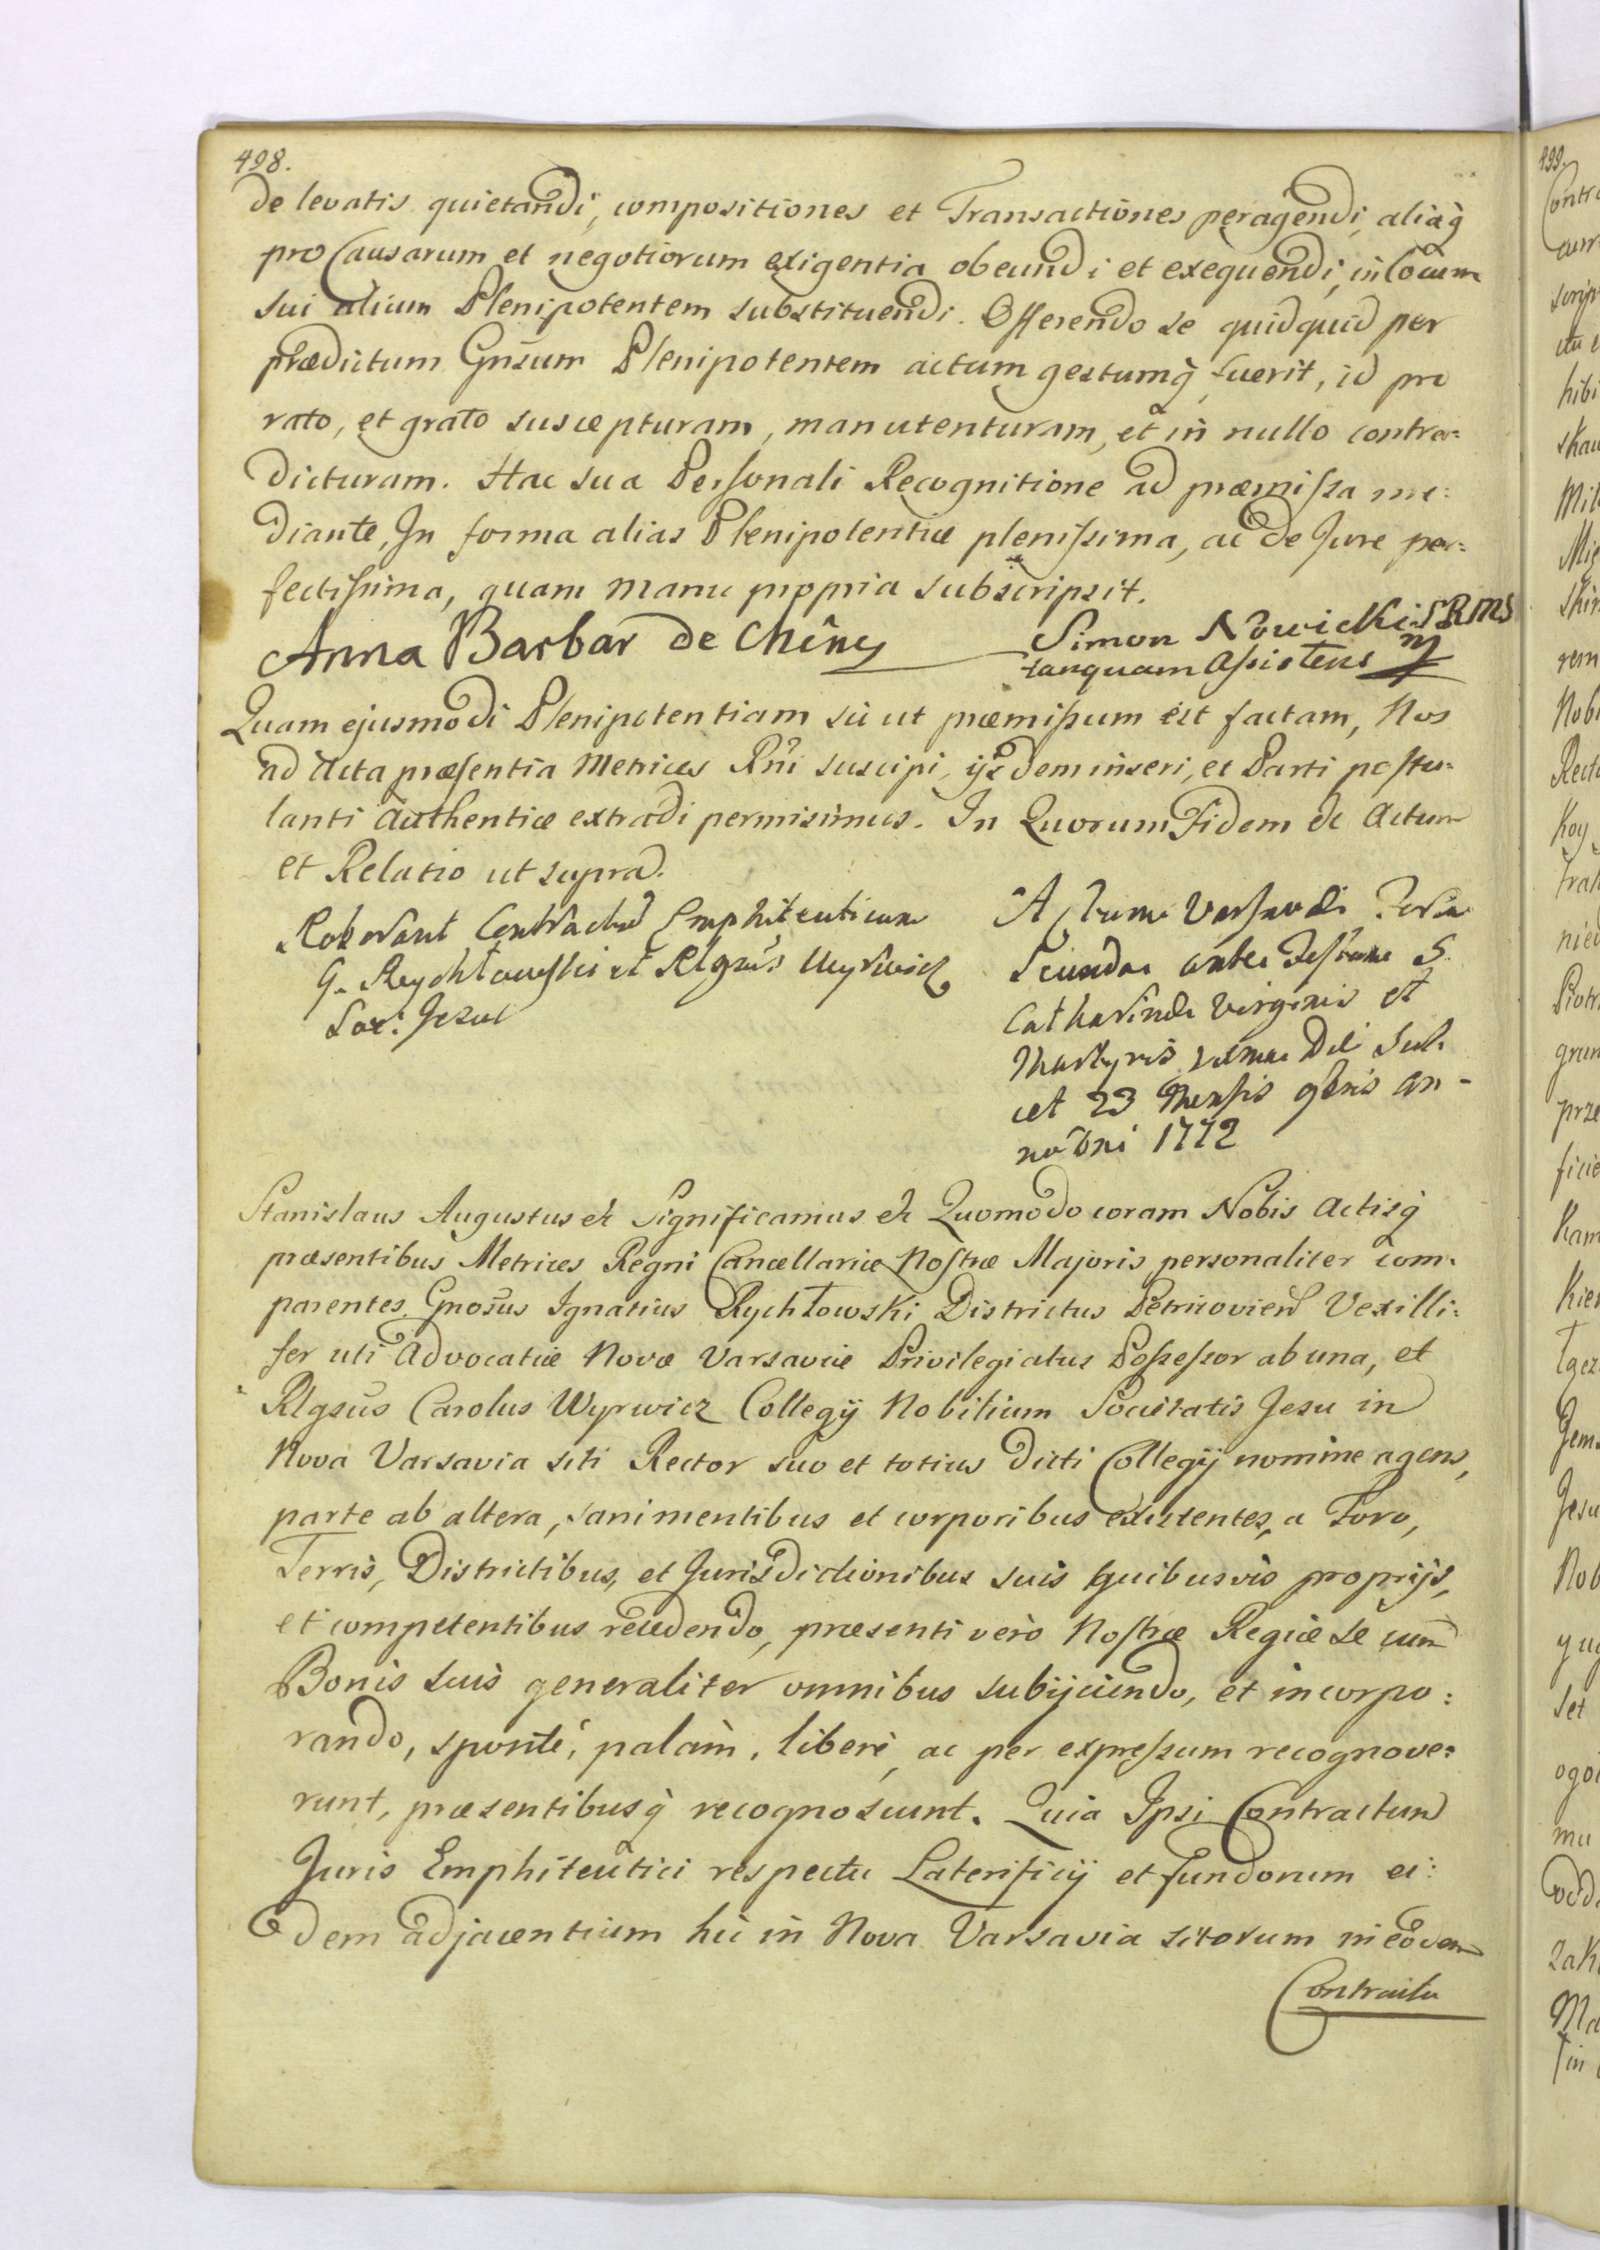 498.
de levatis quietandi, compositiones et Transactiones peragendi, aliaq̀
pro Causarum et negotiorum exigentia obeundi et exequendi, in locum
sui alium Plenipotentem substituendi. Offerendo se quidquid per
prædictum Gnsum Plenipotentem actum gestumq̀ fuerit, id pro
rato, et grato suscepturam, manutenturam, et in nullo contra=
dicturam. Hac sua Personali Recognitione ad præmissa me:
diante, In forma alias Plenipotentiæ plenissima, ac de Jure per:
fectissima, quam manu propria subscripsit.
Anna Barbar de Chêny
Simon Nowicki SRMS
tanquam Assistens
Quam ejusmodi Plenipotentiam sic ut præmissum est factam, Nos
ad Acta præsentia Metrices Rñi suscipi, ijsdem inseri, et Parti postu=
lanti authentice extradi permisimus. In Quorum Fidem &c Actum
et Relatio ut supra.
Roborant Contractum Emphiteuticum
G. Rychłowski et Rlgsus Wyrwicz
Soc: Jesu
Actum Varsaviæ Feria
Secunda ante Festum S.
Catharinæ Virginis et
Martyris
cet 23 Mensis 9bris An-
no Dni 1772
Stanislaus Augustus &c Significamus &c Quomodo coram Nobis Actisq̀
præsentibus Metrices Regni Cancellariæ Nostræ Majoris personaliter com=
parentes Gnosus Ignatius Rychłowski Districtus Petricovien Vexilli:
fer uti Advocatiæ Novæ Varsaviæ Privilegiatus Possessor ab una, et
Rlgsus Carolus Wyrwicz Collegij Nobilium Societatis Jesu in
Nova Varsavia siti Rector suo et totius dicti Collegij nomine agens,
parte ab altera, sani mentibus et corporibus existentes, a Foro,
Terris, Districtibus, et Jurisdictionibus suis quibusvis proprijs,
et competentibus recedendo, præsenti verò Nostræ Regiæ se cum
Bonis suis generaliter omnibus subijciendo, et incorpo:
rando, sponté, palàm, liberè, ac per expressum recognove=
runt, præsentibusq̀ recognoscunt. Quia Ipsi Contractum
Juris Emphiteutici respectu Laterificij et fundorum ei:
dem adjacentium hic in Nova Varsavia sitorum in eodem
Contractu